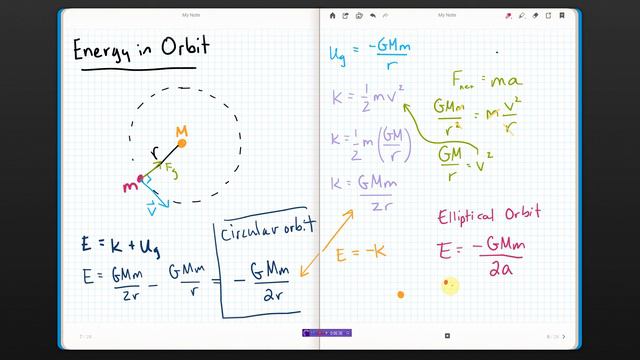 My Note
My Note
Energy in Orbit
M
r
Fg
m
v⃗
E = K + Ug
E = GMm/2r - GMm/r = - GMm/2r
Circular orbit
Ug = -GMm/r
K = 1/2 mv²
K = 1/2 m(GM/r)
K = GMm/2r
E = -K
Fnet = ma
GMm/r² = m v²/r
GM/r = v²
Elliptical Orbit
E = -GMm/2a